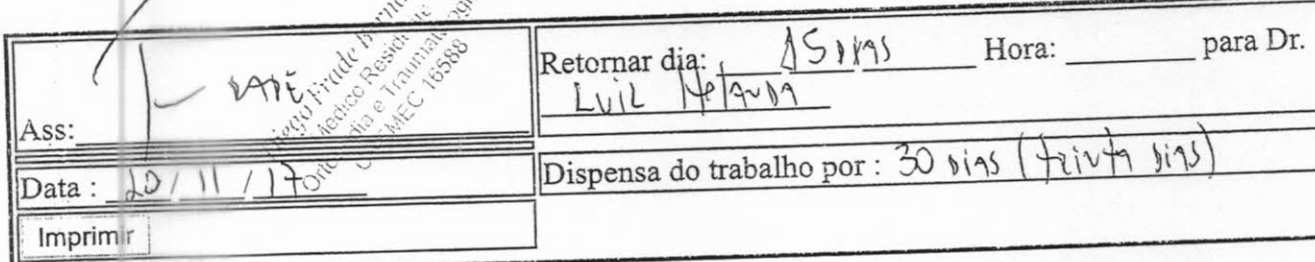 Diego Frade Berna
Médico Residente
Ortopedia e Traumatologia
CRMEC 16588
Ass:
Retornar dia: 15 DIAS Hora: para Dr.
LUIZ HOLANDA
Data : 20 / 11 / 17
Dispensa do trabalho por : 30 DIAS (TRINTA DIAS)
Imprimir